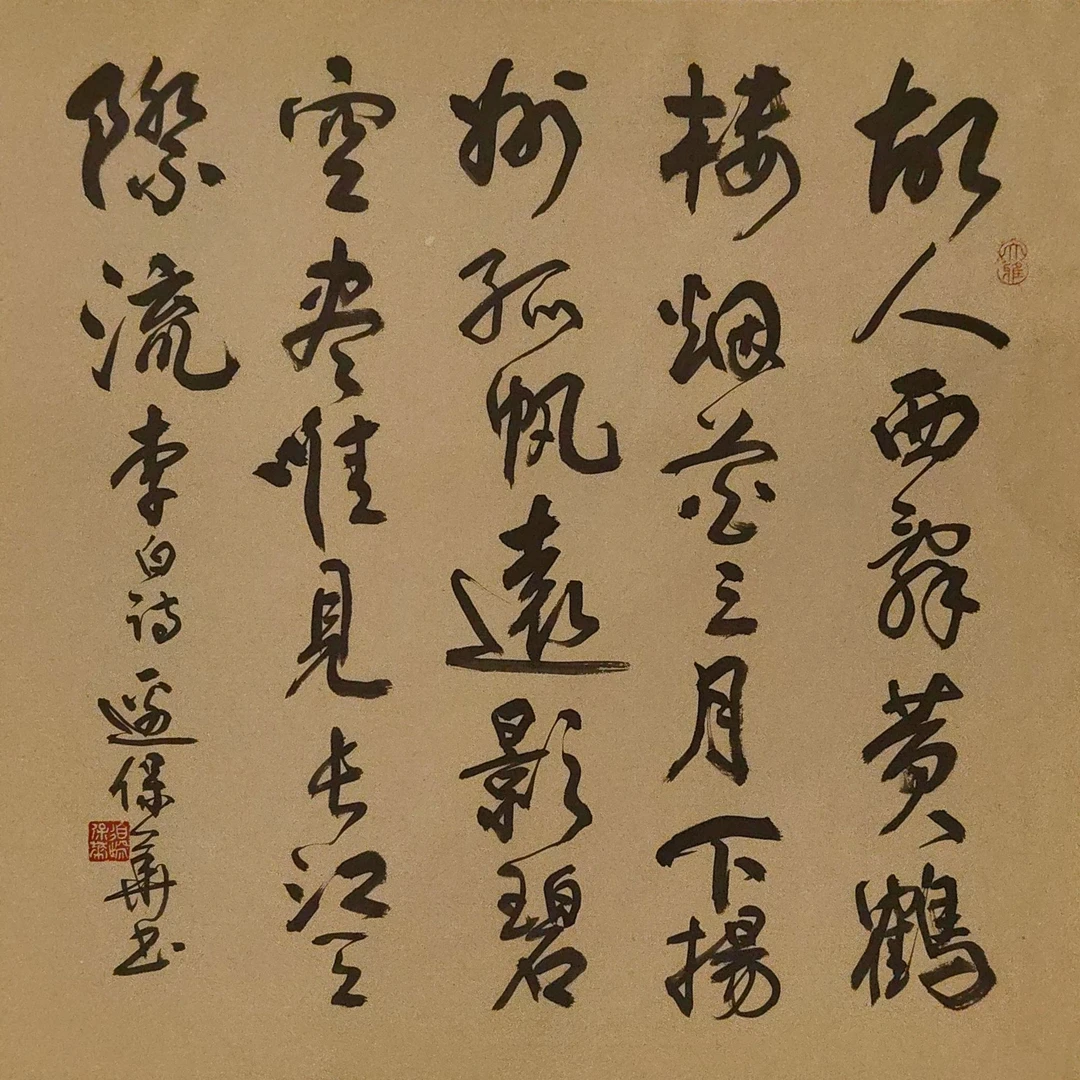 故人西辭黄鶴
楼烟花三月下揚
州孤帆遠影碧
空尽唯見长江天
際流李白诗邊保華书